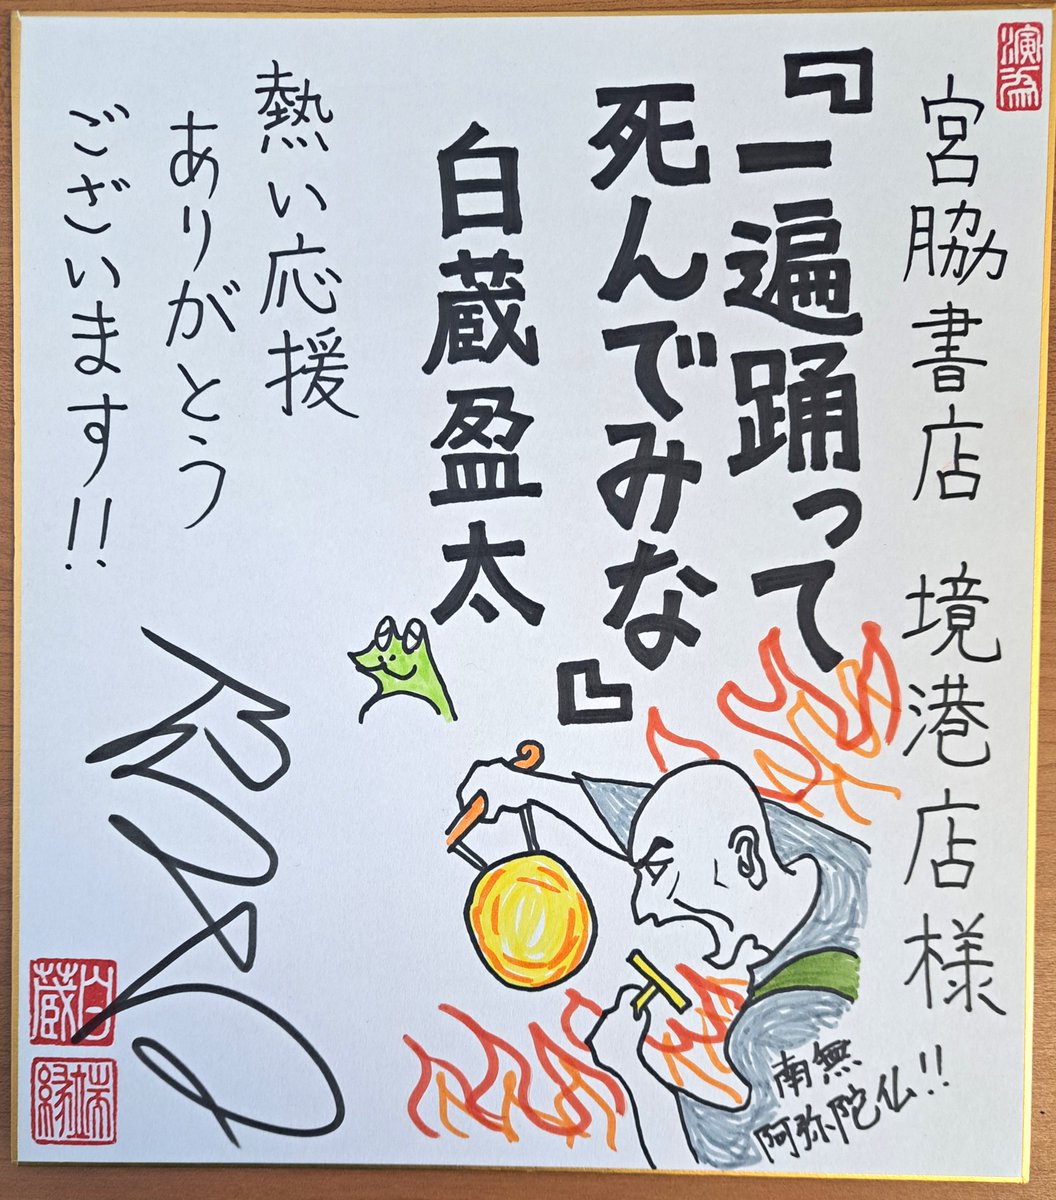 宮脇書店 境港店様
『一遍踊って
死んでみな』
白蔵盈太
熱い応援
ありがとう
ございます!!
南無
阿弥陀仏!!
白蔵